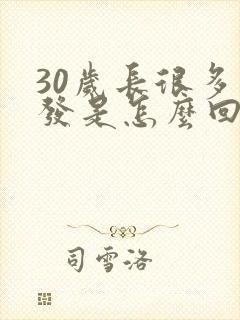 30歲長很多
發是怎麼回
司雪洛